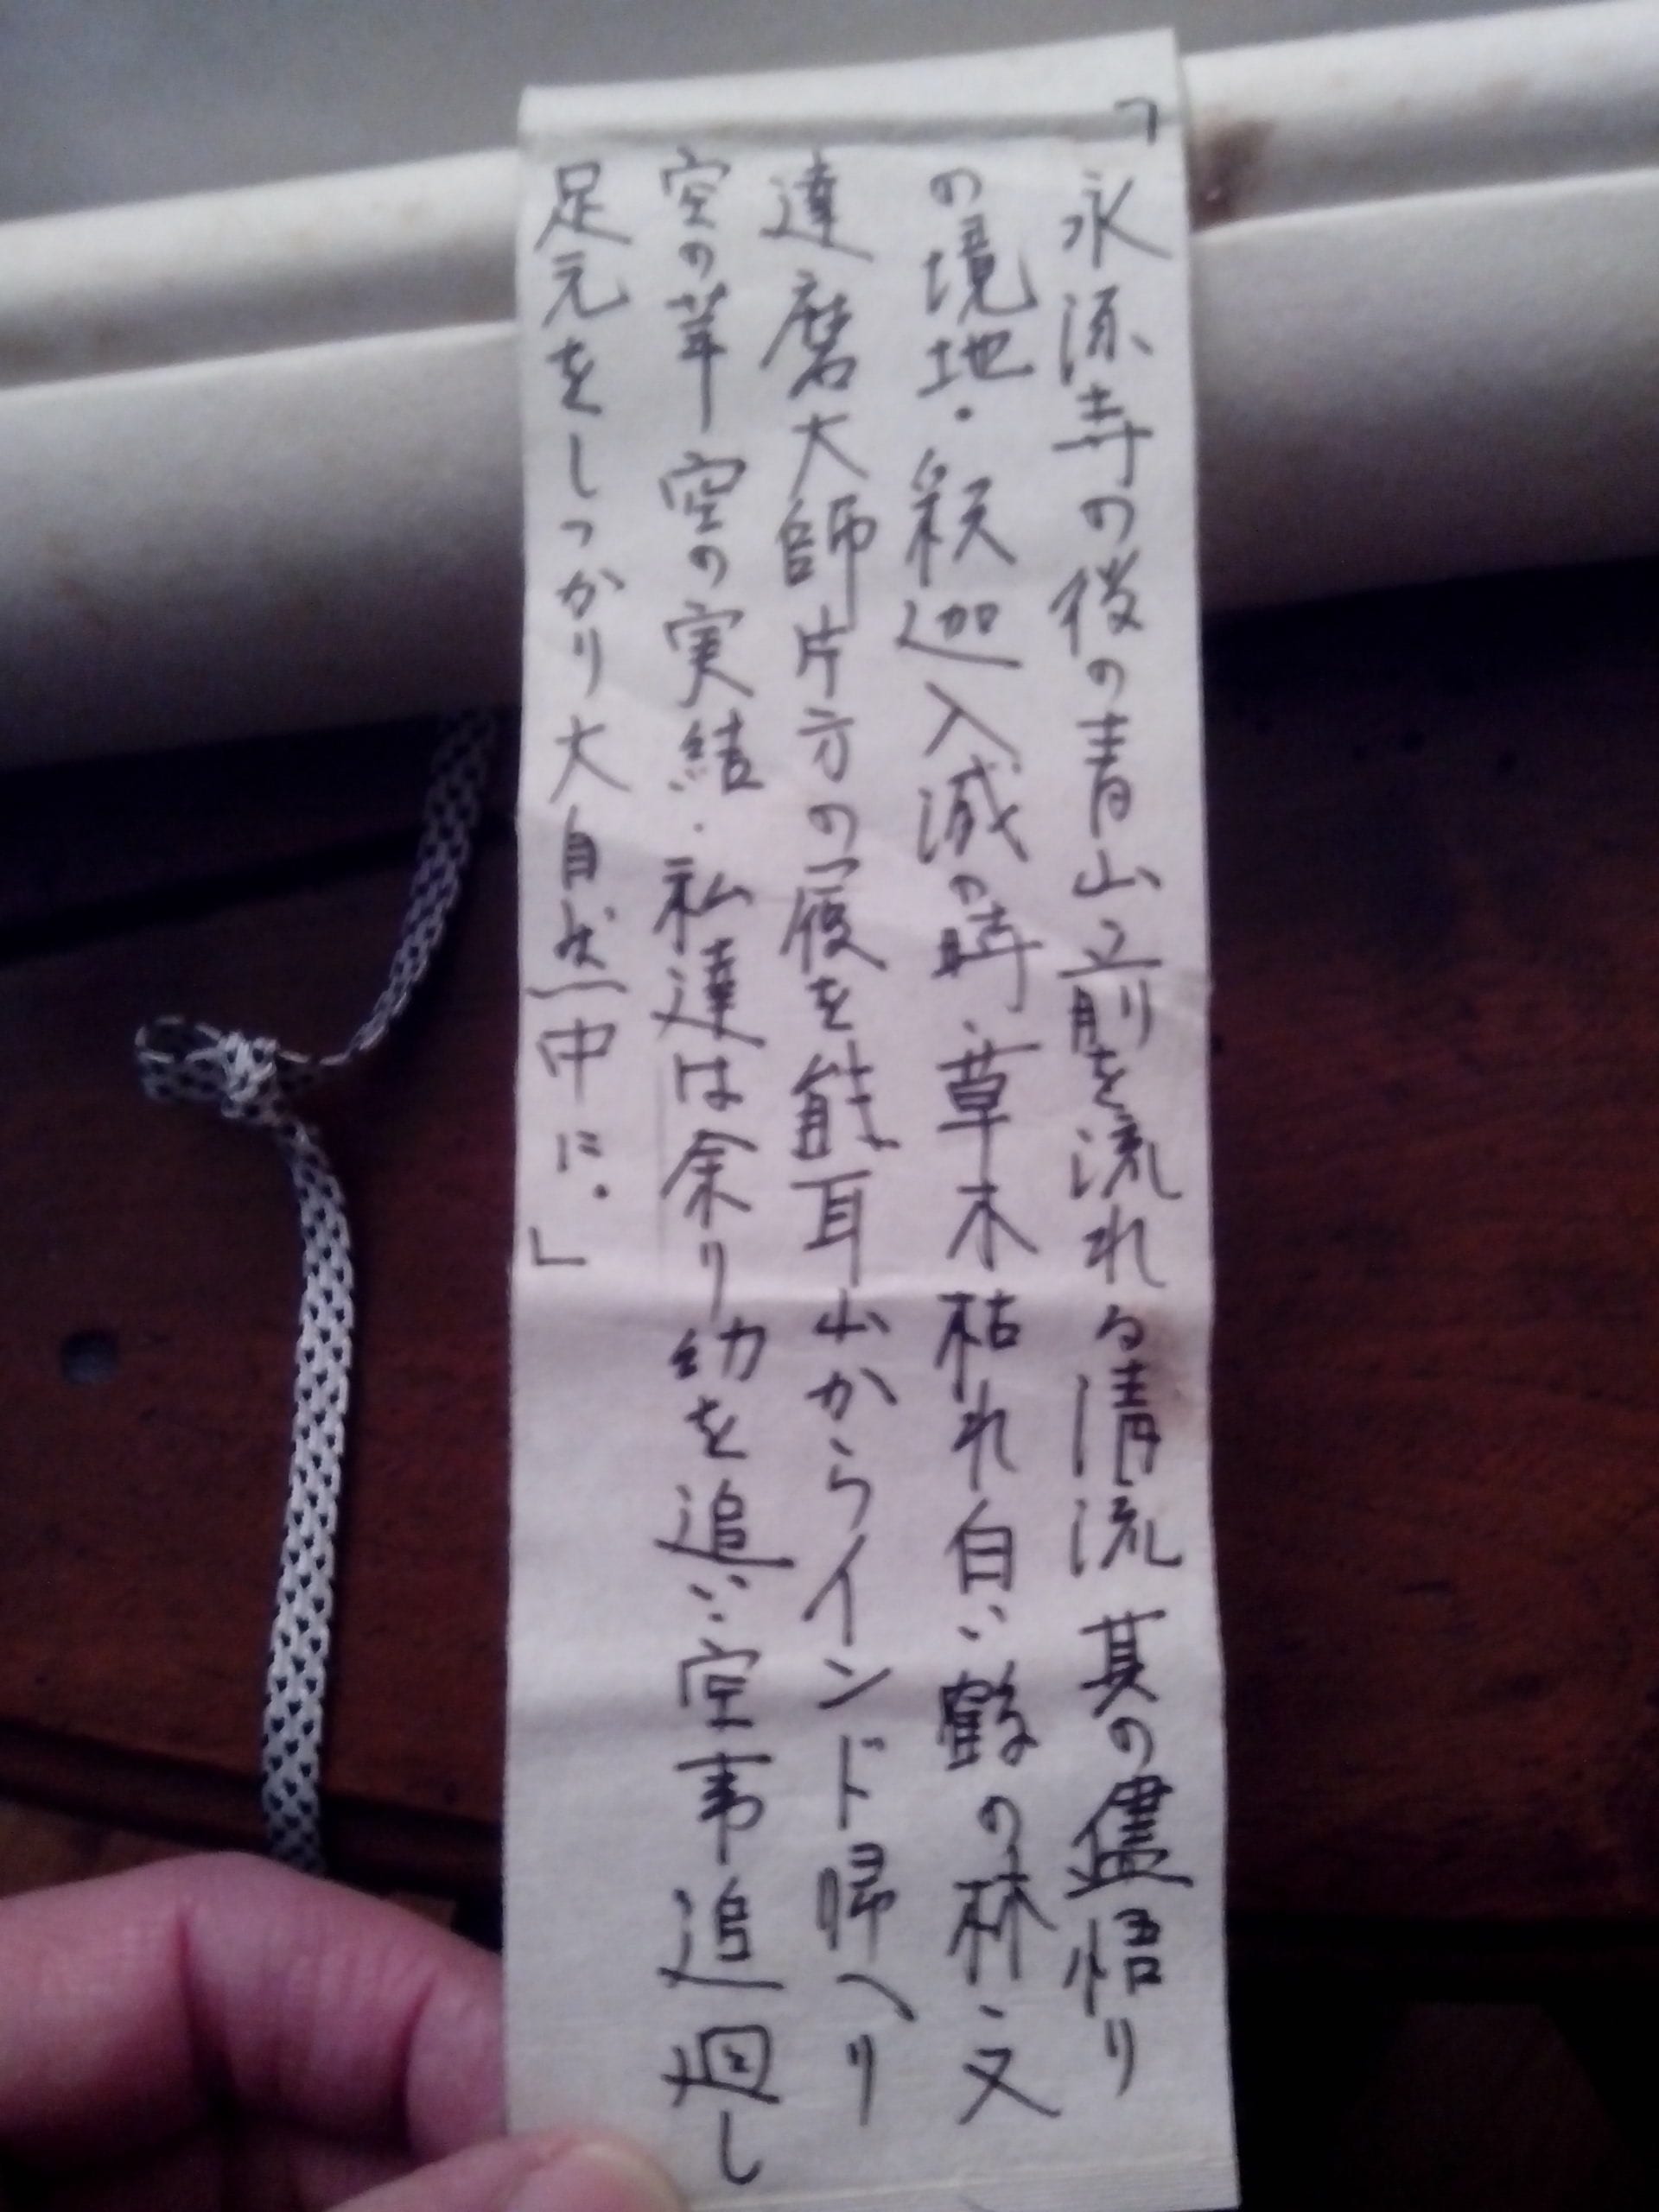 「永源寺の後の青山立前を流れる清流 其の儘悟り
の境地・釈迦入滅の時、草木枯れ白い鶴の林、又
達磨大師片方の履を熊耳山からインド帰へり
空の華 空の実結.私達は余り幼を追い空事追廻し
足元をしっかり大自然中に.」